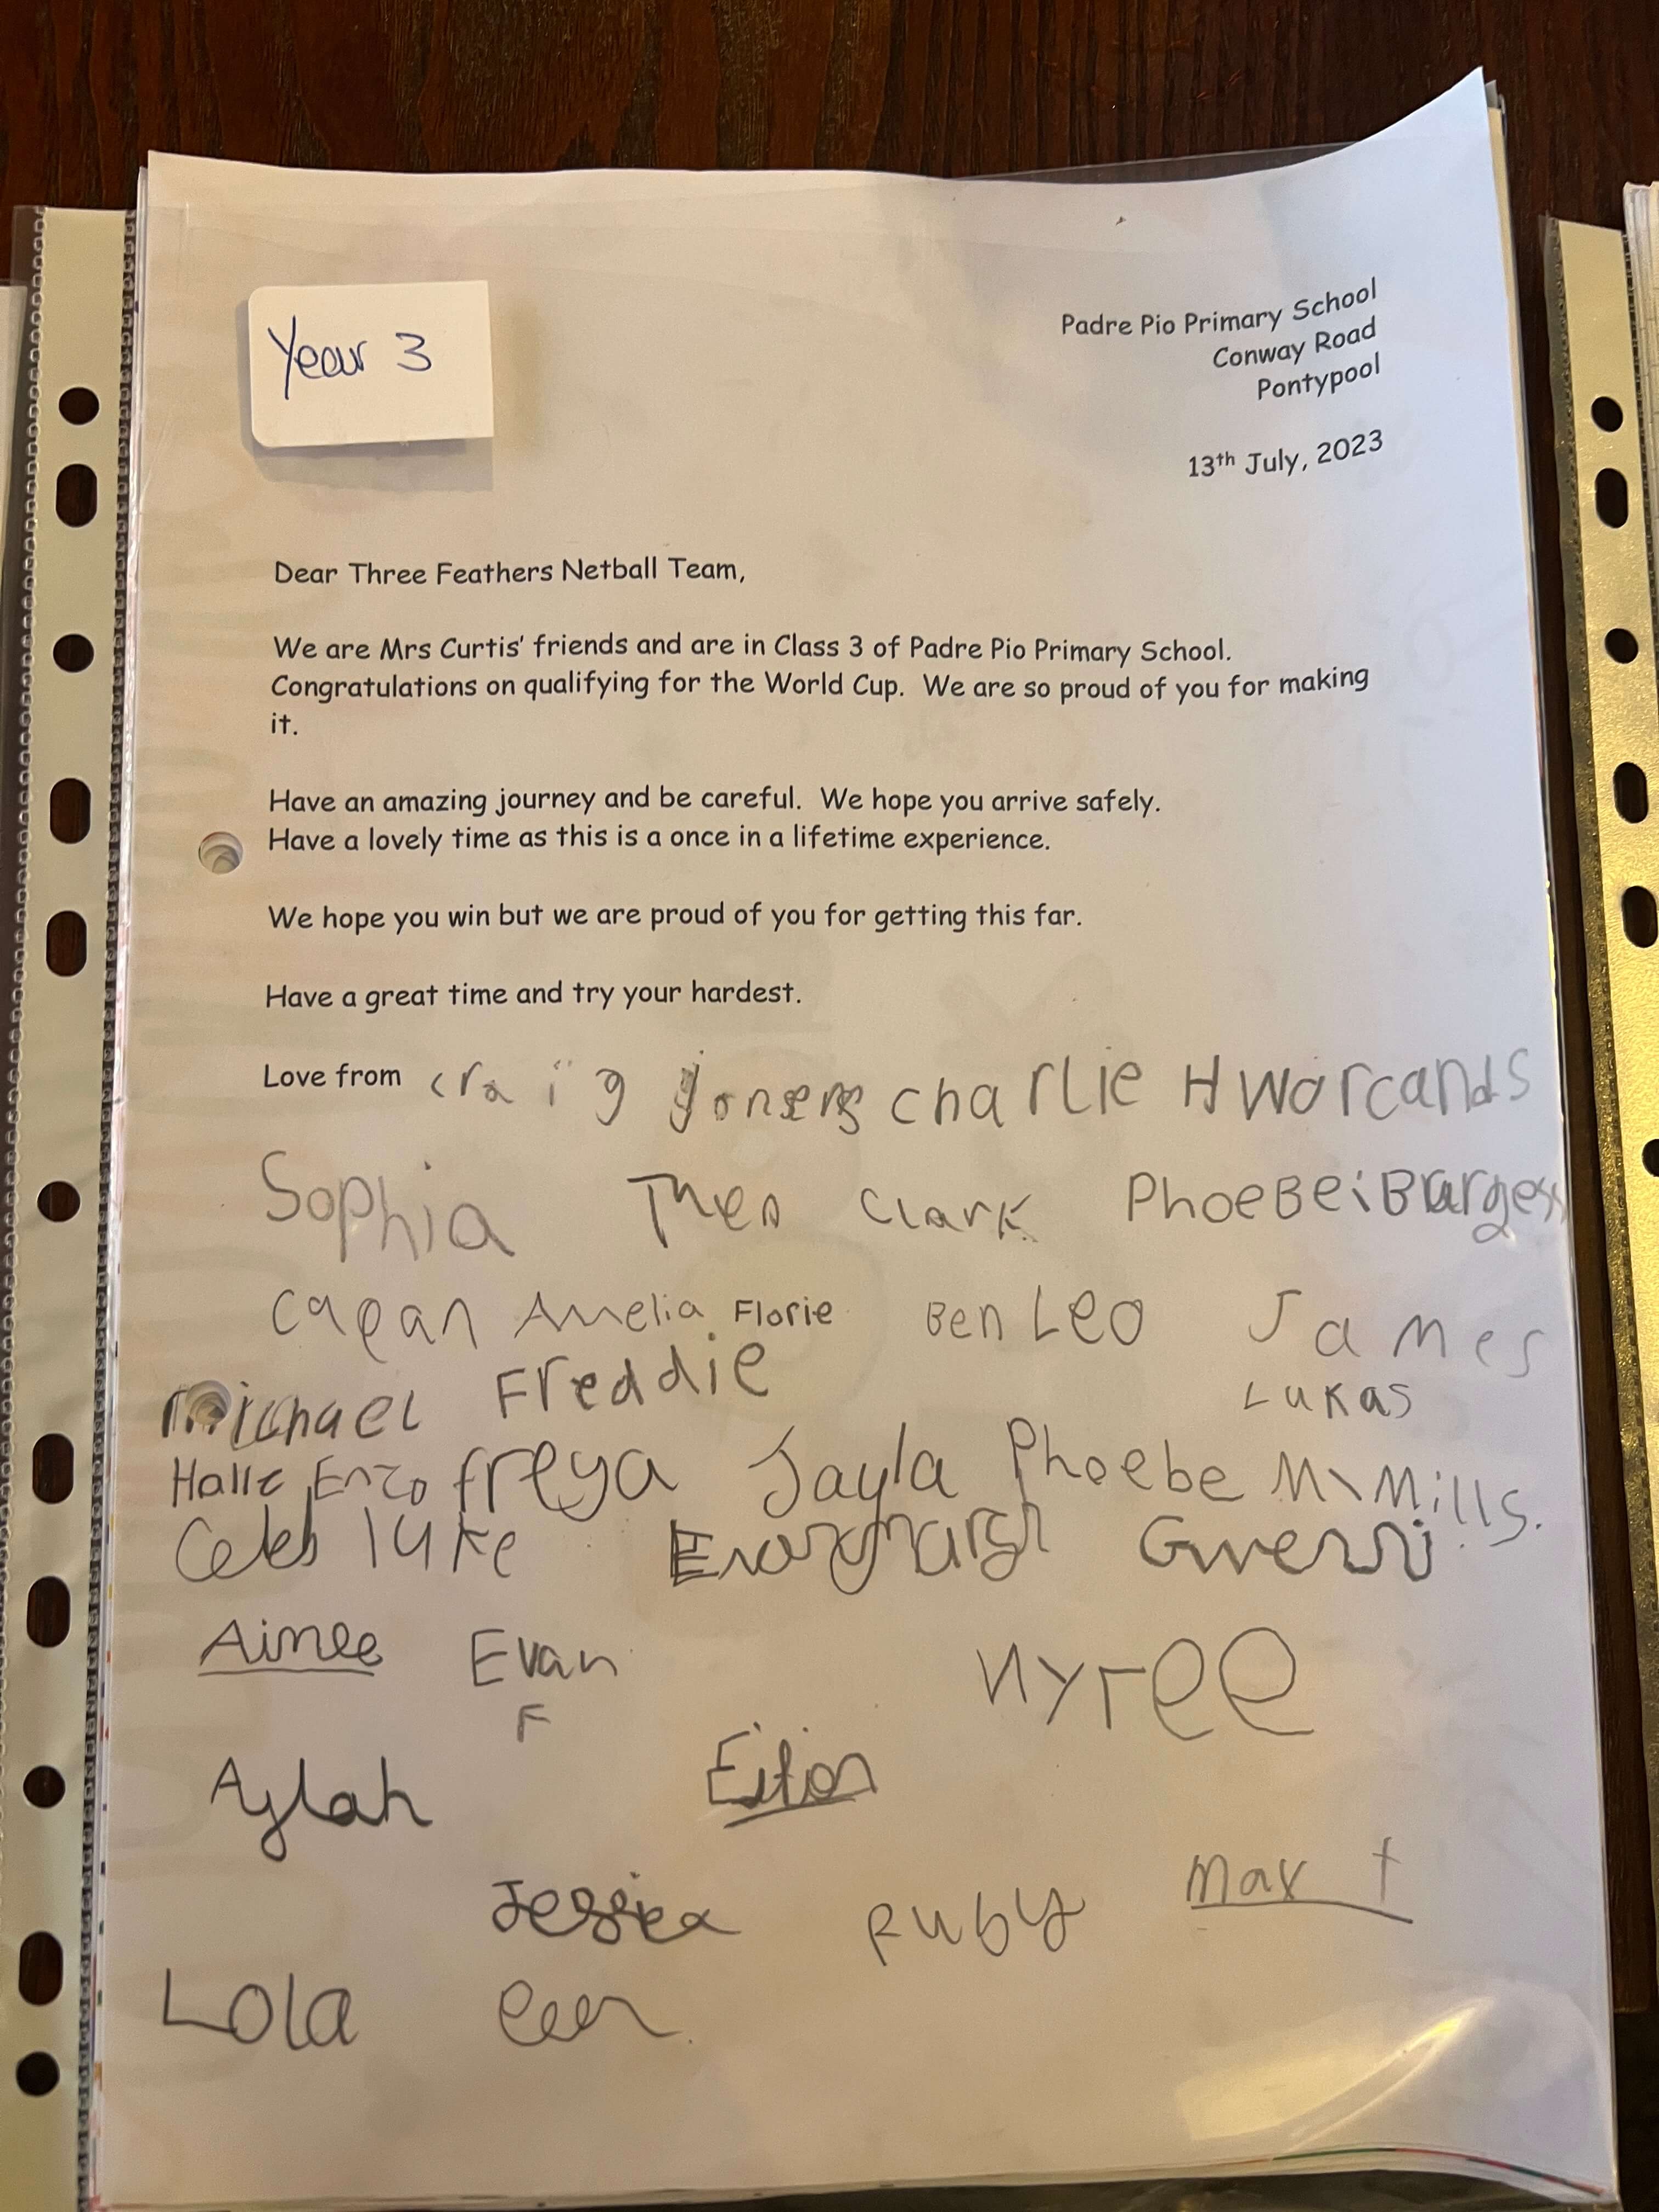 Year 3
Padre Pio Primary School
Conway Road
Pontypool
13th July, 2023
Dear Three Feathers Netball Team,
We are Mrs Curtis' friends and are in Class 3 of Padre Pio Primary School.
Congratulations on qualifying for the World Cup. We are so proud of you for making
it.
Have an amazing journey and be careful. We hope you arrive safely.
Have a lovely time as this is a once in a lifetime experience.
We hope you win but we are proud of you for getting this far.
Have a great time and try your hardest.
Love from craig charlie H
Sophia Theo Clark Phoebe
Amelia Florie Ben Leo James
Michael Freddie Lukas
Enzo freya Jayla Phoebe Mills.
luke
Aimee Evan nyree
F
Aylah
Jessica Ruby Max t
Lola